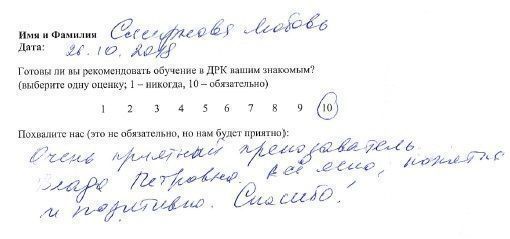 Имя и Фамилия Смирнова Любовь
Дата: 26.10.2018
Готовы ли вы рекомендовать обучение в ДРК вашим знакомым?
(выберите одну оценку; 1 – никогда, 10 – обязательно)
1 2 3 4 5 6 7 8 9 10
Похвалите нас (это не обязательно, но нам будет приятно):
Очень приятный преподаватель
Влада Петровна. Всё ясно, понятно
и позитивно. Спасибо!